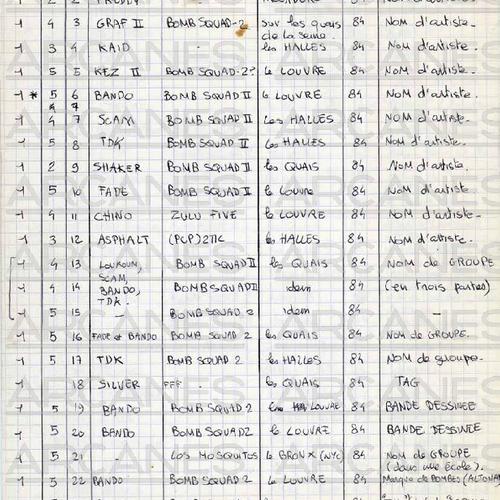 1 2 2 FREDDY
1 4 3 GRAF II BOMB SQUAD-2 sur les quais de la seine. 84 NOM d'artiste-
1 3 4 KAID - les HALLES 84 NOM d'artiste-
1 5 5 KEZ II BOMB SQUAD-2? le LOUVRE 84 NOM d'artiste.
1 * 5 6 BANDO BOMB SQUAD II le LOUVRE 84 NOM d'artiste.
1 4 7 SCAM BOMB SQUAD II les HALLES 84 NOM d'artiste-
1 5 8 TDK BOMB SQUAD II les HALLES 84 NOM d'artiste.
1 2 9 SHAKER BOMB SQUAD II les QUAIS 84 NOM d'artiste.
1 5 10 FADE BOMB SQUAD II le Louvre 84 NOM d'artiste.
1 4 11 CHINO ZULU FIVE le LOUVRE 84 NOM d'artiste-
1 3 12 ASPHALT les HALLES 84 NOM d'artiste.
1 4 13 LOUKOUM, BOMB SQUAD II les QUAIS 84 NOM de GROUPE
SCAM,
1 4 14 BANDO, BOMB SQUAD II idem 84 (en trois parties)
TDK.
1 5 15 - BOMB SQUAD 2 idem 84 -
1 5 16 FADE et BANDO BOMB SQUAD 2 les QUAIS 84 NOM de GROUPE.
1 5 17 TDK BOMB SQUAD 2 les HALLES 84 NOM de groupe-
1 18 SILVER FFF - les QUAIS 84 TAG
1 5 19 BANDO BOMB SQUAD 2 LOUVRE 84 BANDE DESSINEE
1 5 20 BANDO BOMB SQUAD 2 le LOUVRE 84 BANDE DESSINEE
1 5 21 - LOS MOSQUITOS le BRONX (NYC) 84 NOM de GROUPE (dans une école).
1 5 22 BANDO BOMB SQUAD 2 le LOUVRE 84 Marque de BOMBES (ALTONA
ARCANES